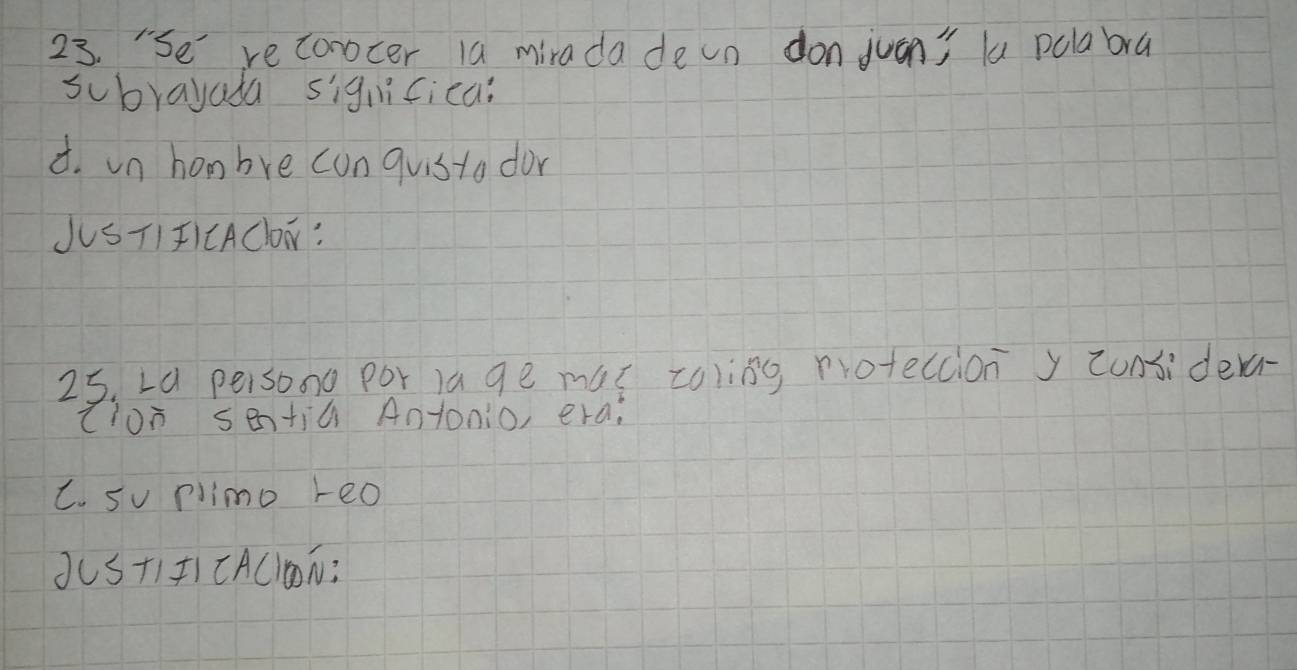 23. "Sé reconocer la mirada de un don juan", la palabra
subrayada significa:
d. un hombre conquistador
JUSTIFICACIÓN:
25. La persona por la qe mas cariño, protección y considera-
ción sentía Antonio, era:
c. su primo Leo
JUSTIFICACIÓN: